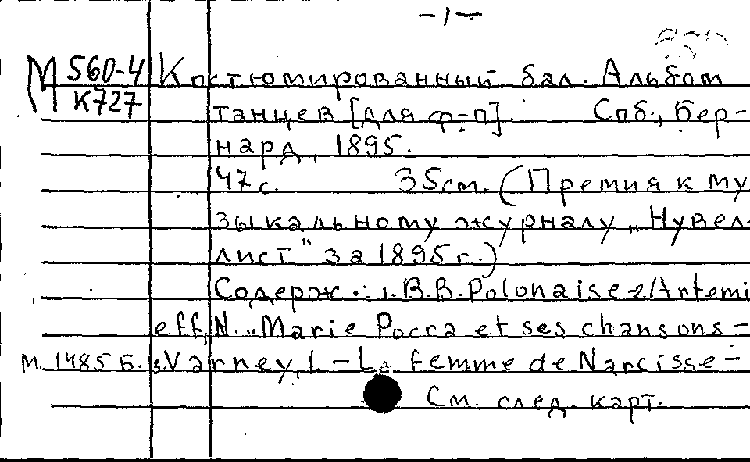 -1-
М 560-4 Костюмированный бал. Альбом
К727 танцев [для ф-п] Спб., Бер-
нард, 1895.
47 с. 35см. (Премия к му
зыкальному журналу „Нувел-
лист" за 1895 г.)
Содерж.: 1. B.B. Polonaise 2/Artemi
eff, N. „Marie Pocca et ses chansons -
М. 1485 Б. 3. Varney, L - La femme de Narcisse -
См. след. карт.